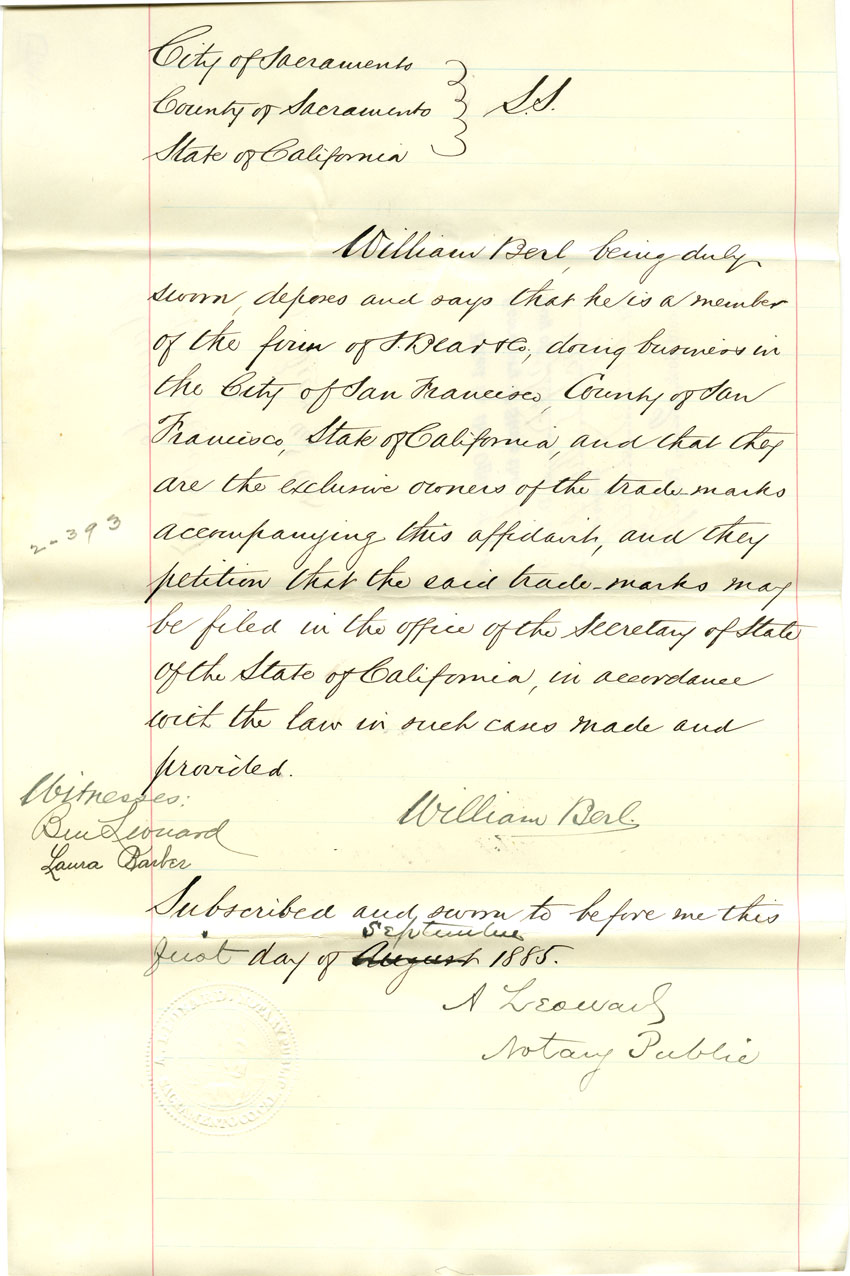 City of Sacramento
County of Sacramento } S.S.
State of California
William Berl, being duly
sworn, deposes and says that he is a member
of the firm of S. Dear & Co., doing business in
the City of San Francisco, County of San
Francisco, State of California, and that they
are the exclusive owners of the trade-marks
accompanying this affidavit, and they
petition that the said trade-marks may
be filed in the office of the Secretary of State
of the State of California, in accordance
with the law in such cases made and
provided.
2-393
Witnesses:
Ben Leonard
Laura Barber
William Berl.
Subscribed and sworn to before me this
September
first day of August 1885.
A Leonard
Notary Public